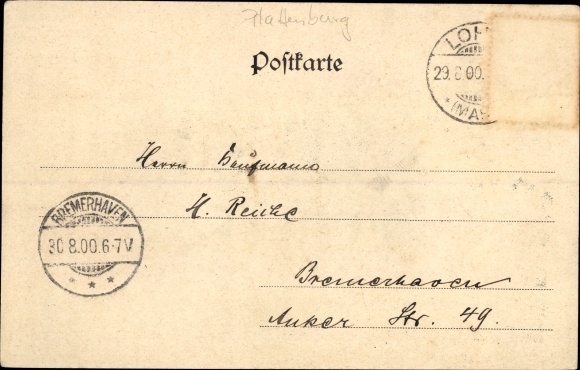 Plattenburg
Postkarte
LOH
29.8.00.
* (MAS
Herrn Kaufmann
H. Reiche
BREMERHAVEN
30.8.00.6-7V
* * *
Bremerhaven
Anker Str. 49.